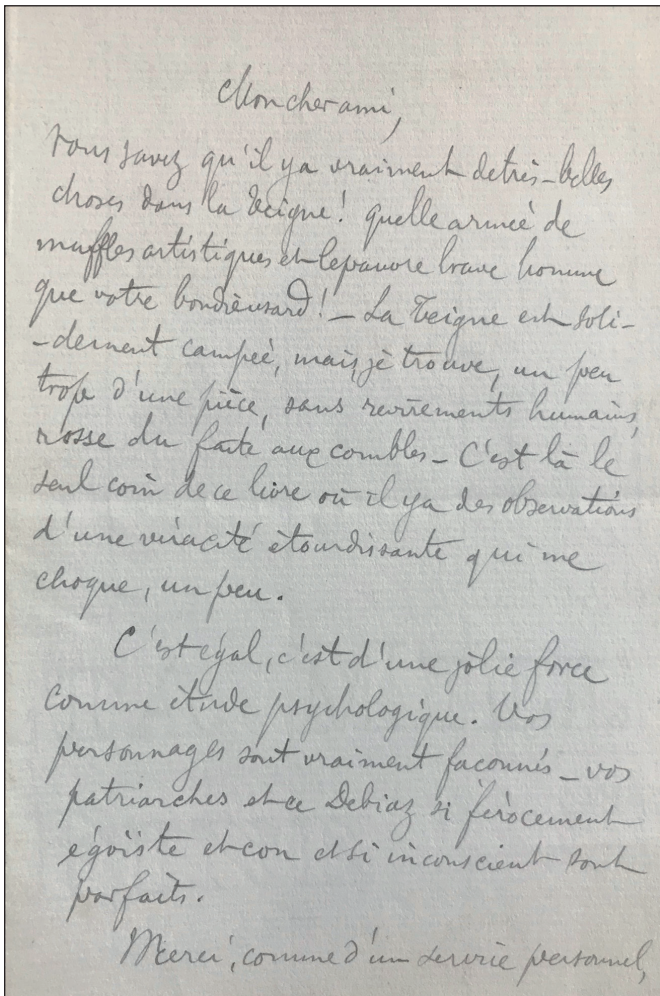 Mon cher ami,
Vous savez qu'il y a vraiment de très-belles
choses dans la Teigne! quelle armée de
muffles artistiques et le pauvre brave homme
que votre bondieusard! _ La Teigne est soli-
-dement campée, mais, je trouve, un peu
trop d'une pièce, sans revirements humains,
rosse du faîte aux combles _ C'est là le
seul coin de ce livre où il y a des observations
d'une véracité étourdissante qui me
choque, un peu.
C'est égal, c'est d'une jolie force
comme étude psychologique. Vos
personnages sont vraiment façonnés _ vos
patriarches et ce Debiaz si férocement
égoïste et con et si inconscient sont
parfaits.
Merci, comme d'un service personnel,